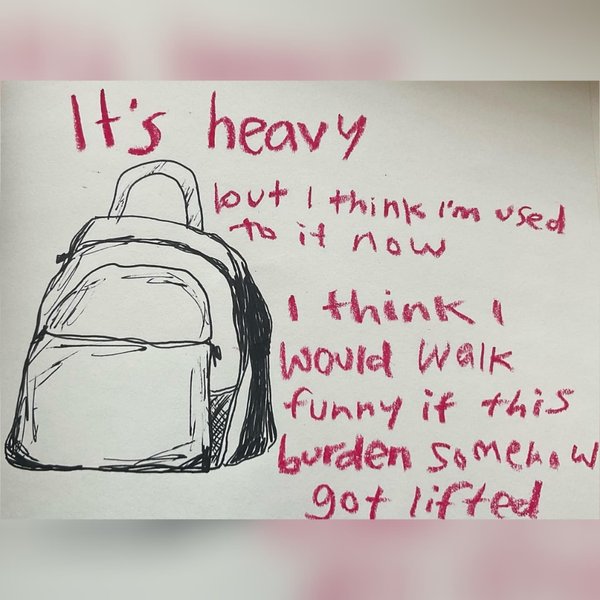 It's heavy
but I think I'm used
to it now
I think I
would walk
funny if this
burden somehow
got lifted